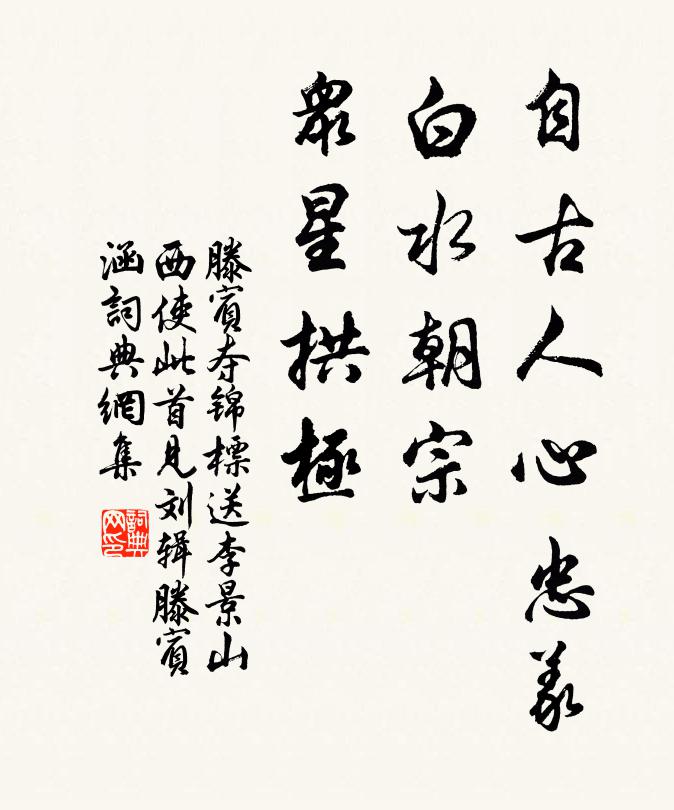 自古人心忠義
白水朝宗
衆星拱極
滕賓夺锦標送李景山
西使此首見刘辑滕賓
涵詞典網集
詞典
网印